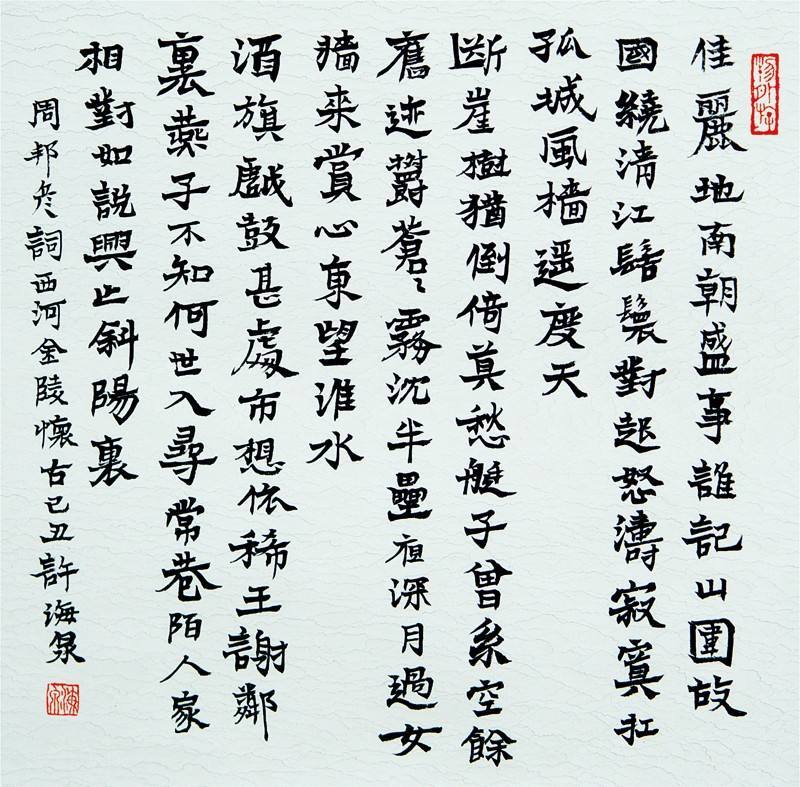 佳麗地南朝盛事誰記山圍故
國繞清江髻鬟對起怒濤寂寞打
孤城風檣遥度天
断崖樹猶倒倚莫愁艇子曾系空餘
舊迹欝蒼々霧沈半壘夜深月過女
牆来賞心東望淮水
酒旗戲鼓甚處市想依稀王謝鄰
裏燕子不知何世入尋常巷陌人家
相對如説興亡斜陽裏
周邦彦詞西河金陵懷古己丑許海泉